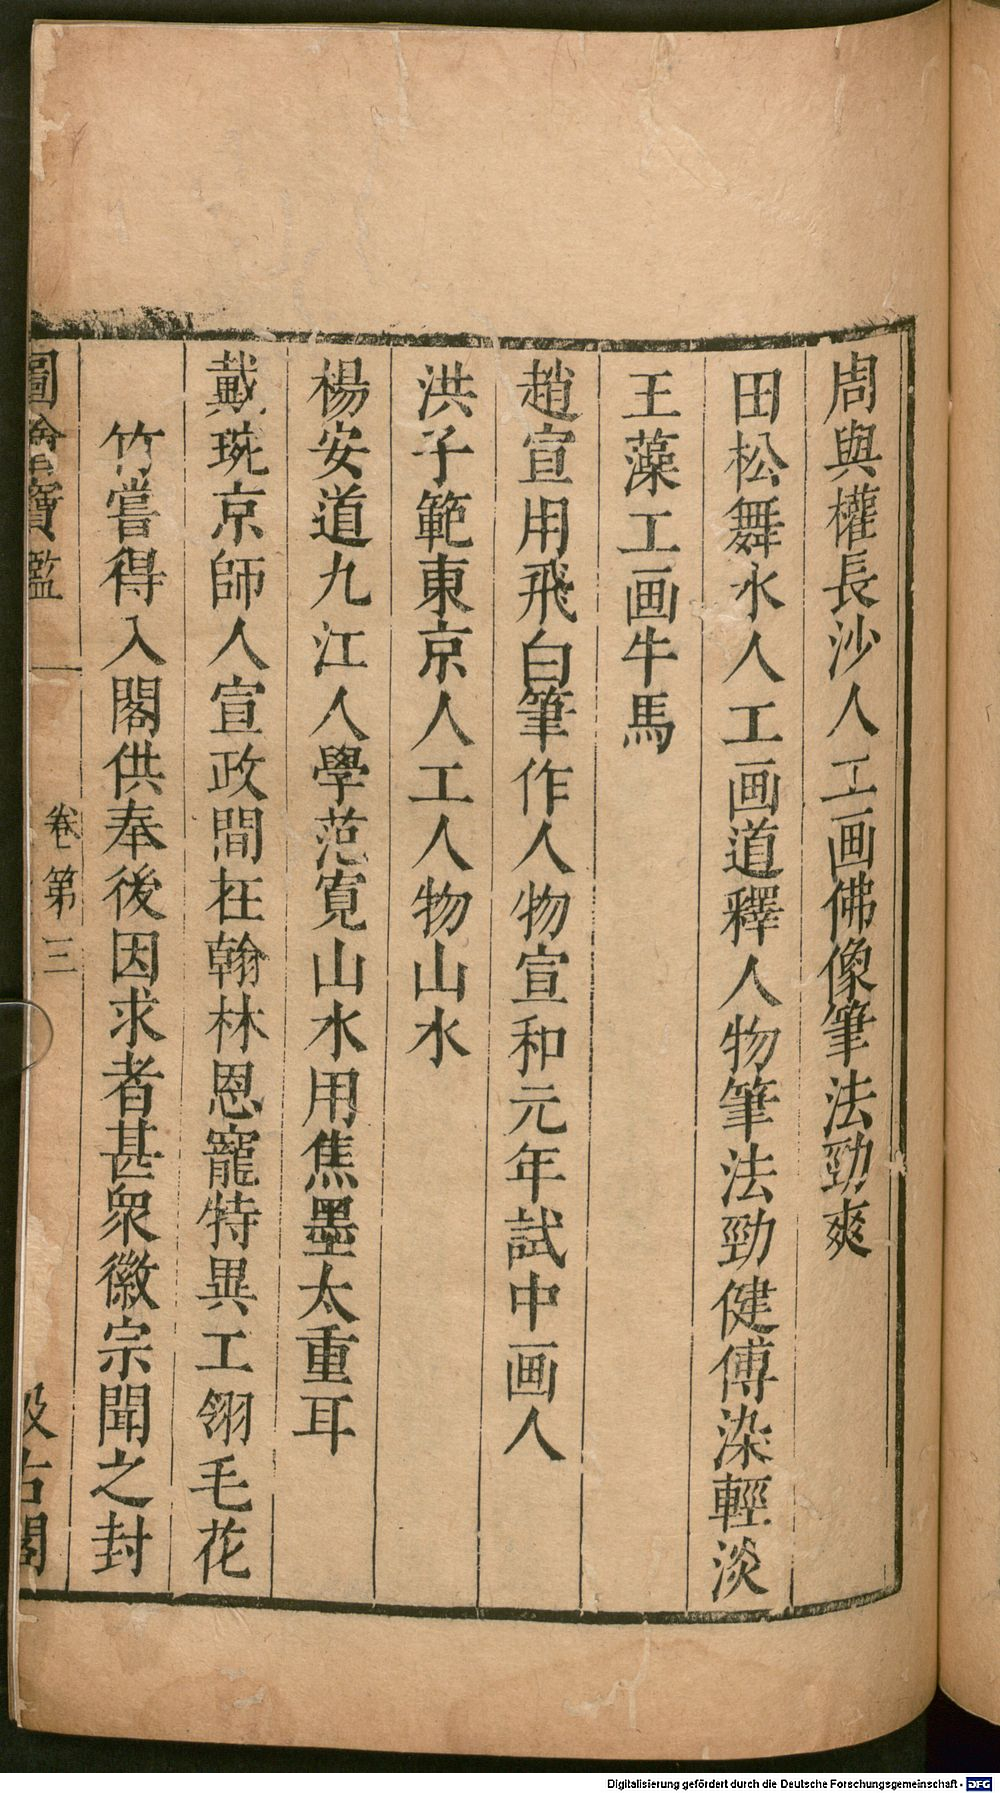 周與權長沙人工画佛像筆法勁爽
田松舞水人工画道釋人物筆法勁健傅染輕淡
王藻工画牛馬
趙宣用飛白筆作人物宣和元年試中画人
洪子範東京人工人物山水
楊安道九江人學范寬山水用焦墨太重耳
戴琬京師人宣政間在翰林恩寵特異工翎毛花
竹嘗得入閣供奉後因求者甚衆徽宗聞之封
圖繪寶鑑 卷第三 汲古閣
Digitalisierung gefördert durch die Deutsche Forschungsgemeinschaft - DFG